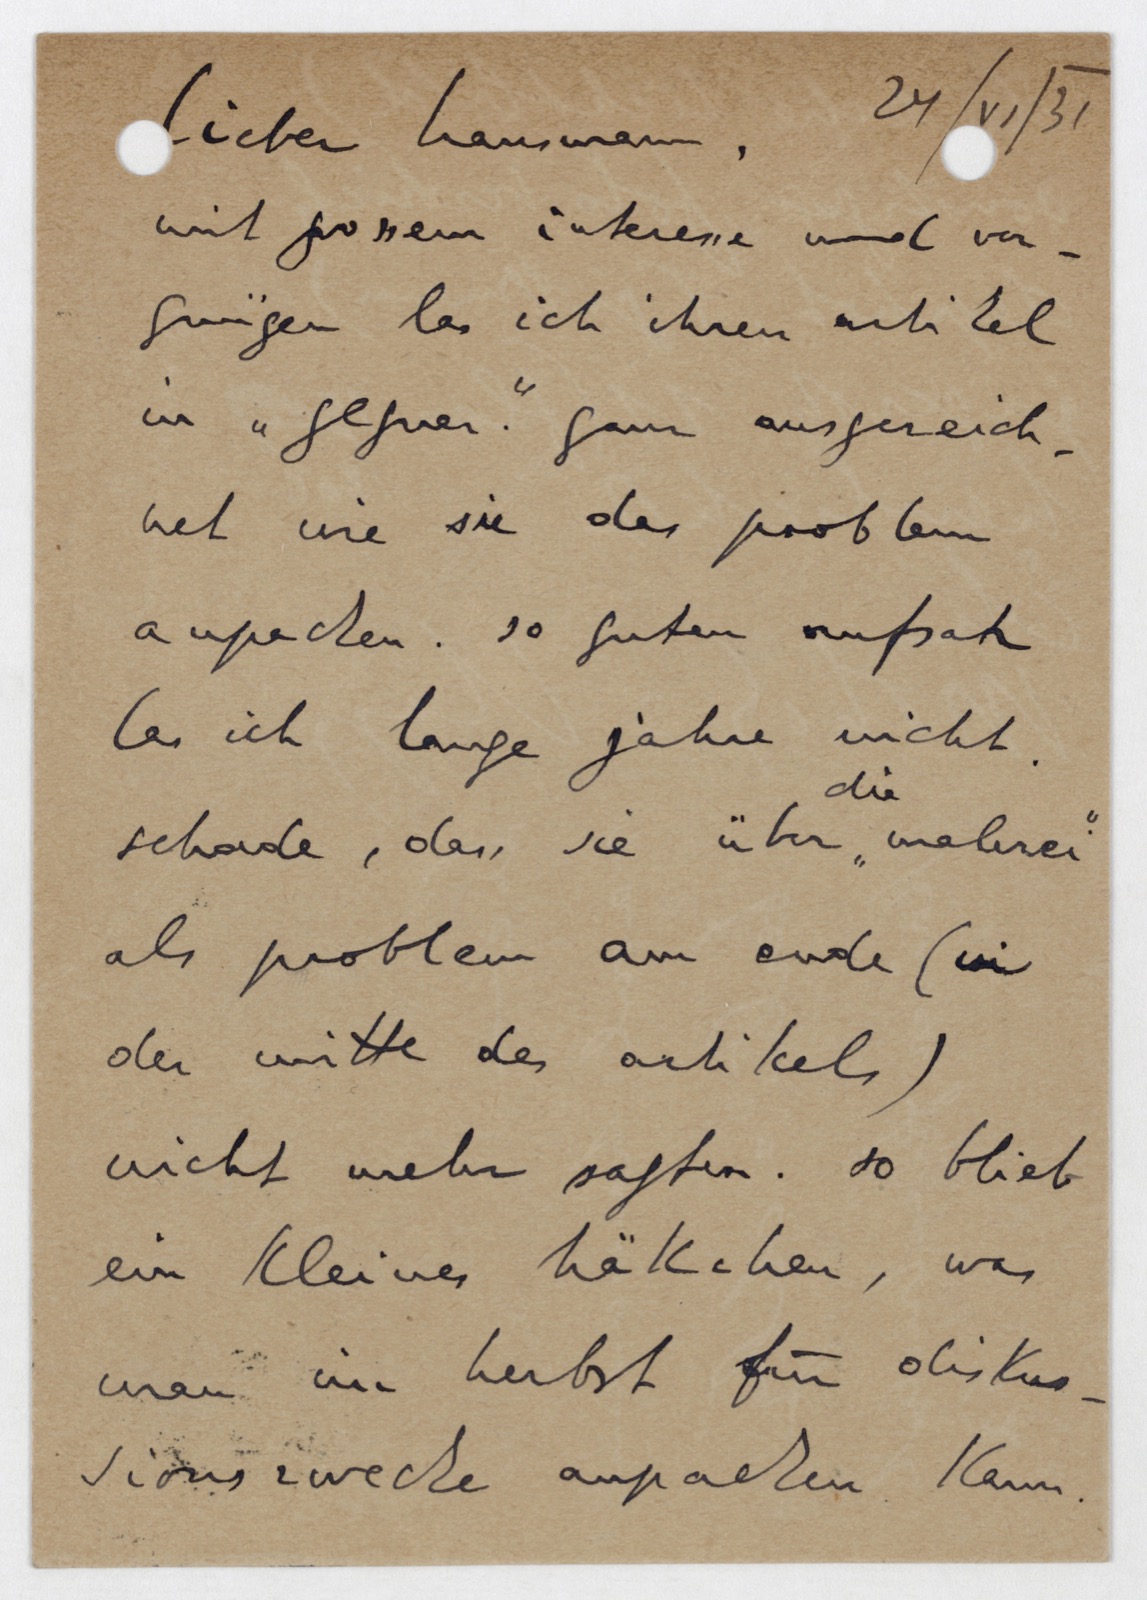 24/VI/31
lieber hausmann,
mit grossem interesse und ver-
gnügen las ich ihren artikel
in „gegner". ganz ausgezeich-
net wie sie das problem
anpacken. so guten aufsatz
las ich lange jahre nicht.
schade, dass sie über die „malerei"
als problem am ende (in
der mitte des artikels)
nicht mehr sagten. so blieb
ein kleines häkchen, was
man im herbst für diskus-
sionszwecke anpacken kann.